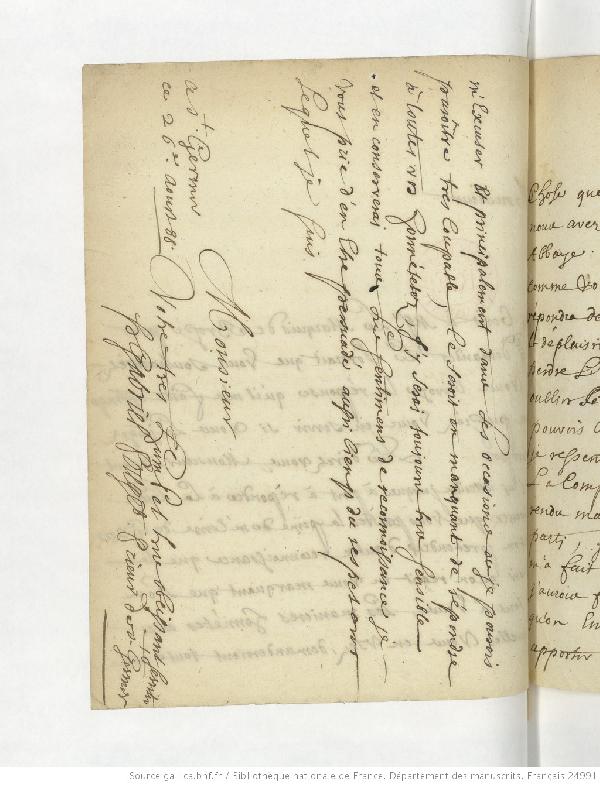 m'Excuser Et principalement dans des occasions ou je pouvois
paroître tres Coupable, Ce seroit en manquant de répondre
à toutes vos honnêtetez, j'y serai toujours tres sensible
et en conserverai tous les sentimens de reconnoissance, je
vous prie d'en Etre persuadé aussi bien q du respect avec
Lequel je suis
Monsieur
a St Germer
ce 26e aoust 88.
Votre tres humble et tres obéissant serviteur
fr Gabriel Prieur de St Germer
Chose que
nous avez
Abbaye.
Comme Vo
répondre de
Le déplaisir
perdre Le
oublier Le
pouvois
je respect
La Comp
rendu ma
parti, j
m'a fait
j'aurois f
qu'on En
apporter
Source gallica.bnf.fr / Bibliothèque nationale de France. Département des manuscrits. Français 24991